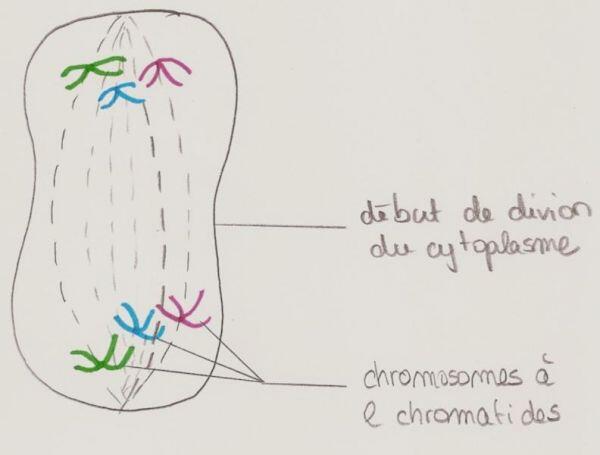 début de divion
du cytoplasme
chromosomes à
2 chromatides